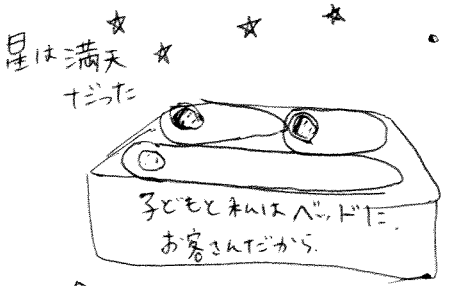 星は満天
だった
子どもと私はベッドだ、
お客さんだから、